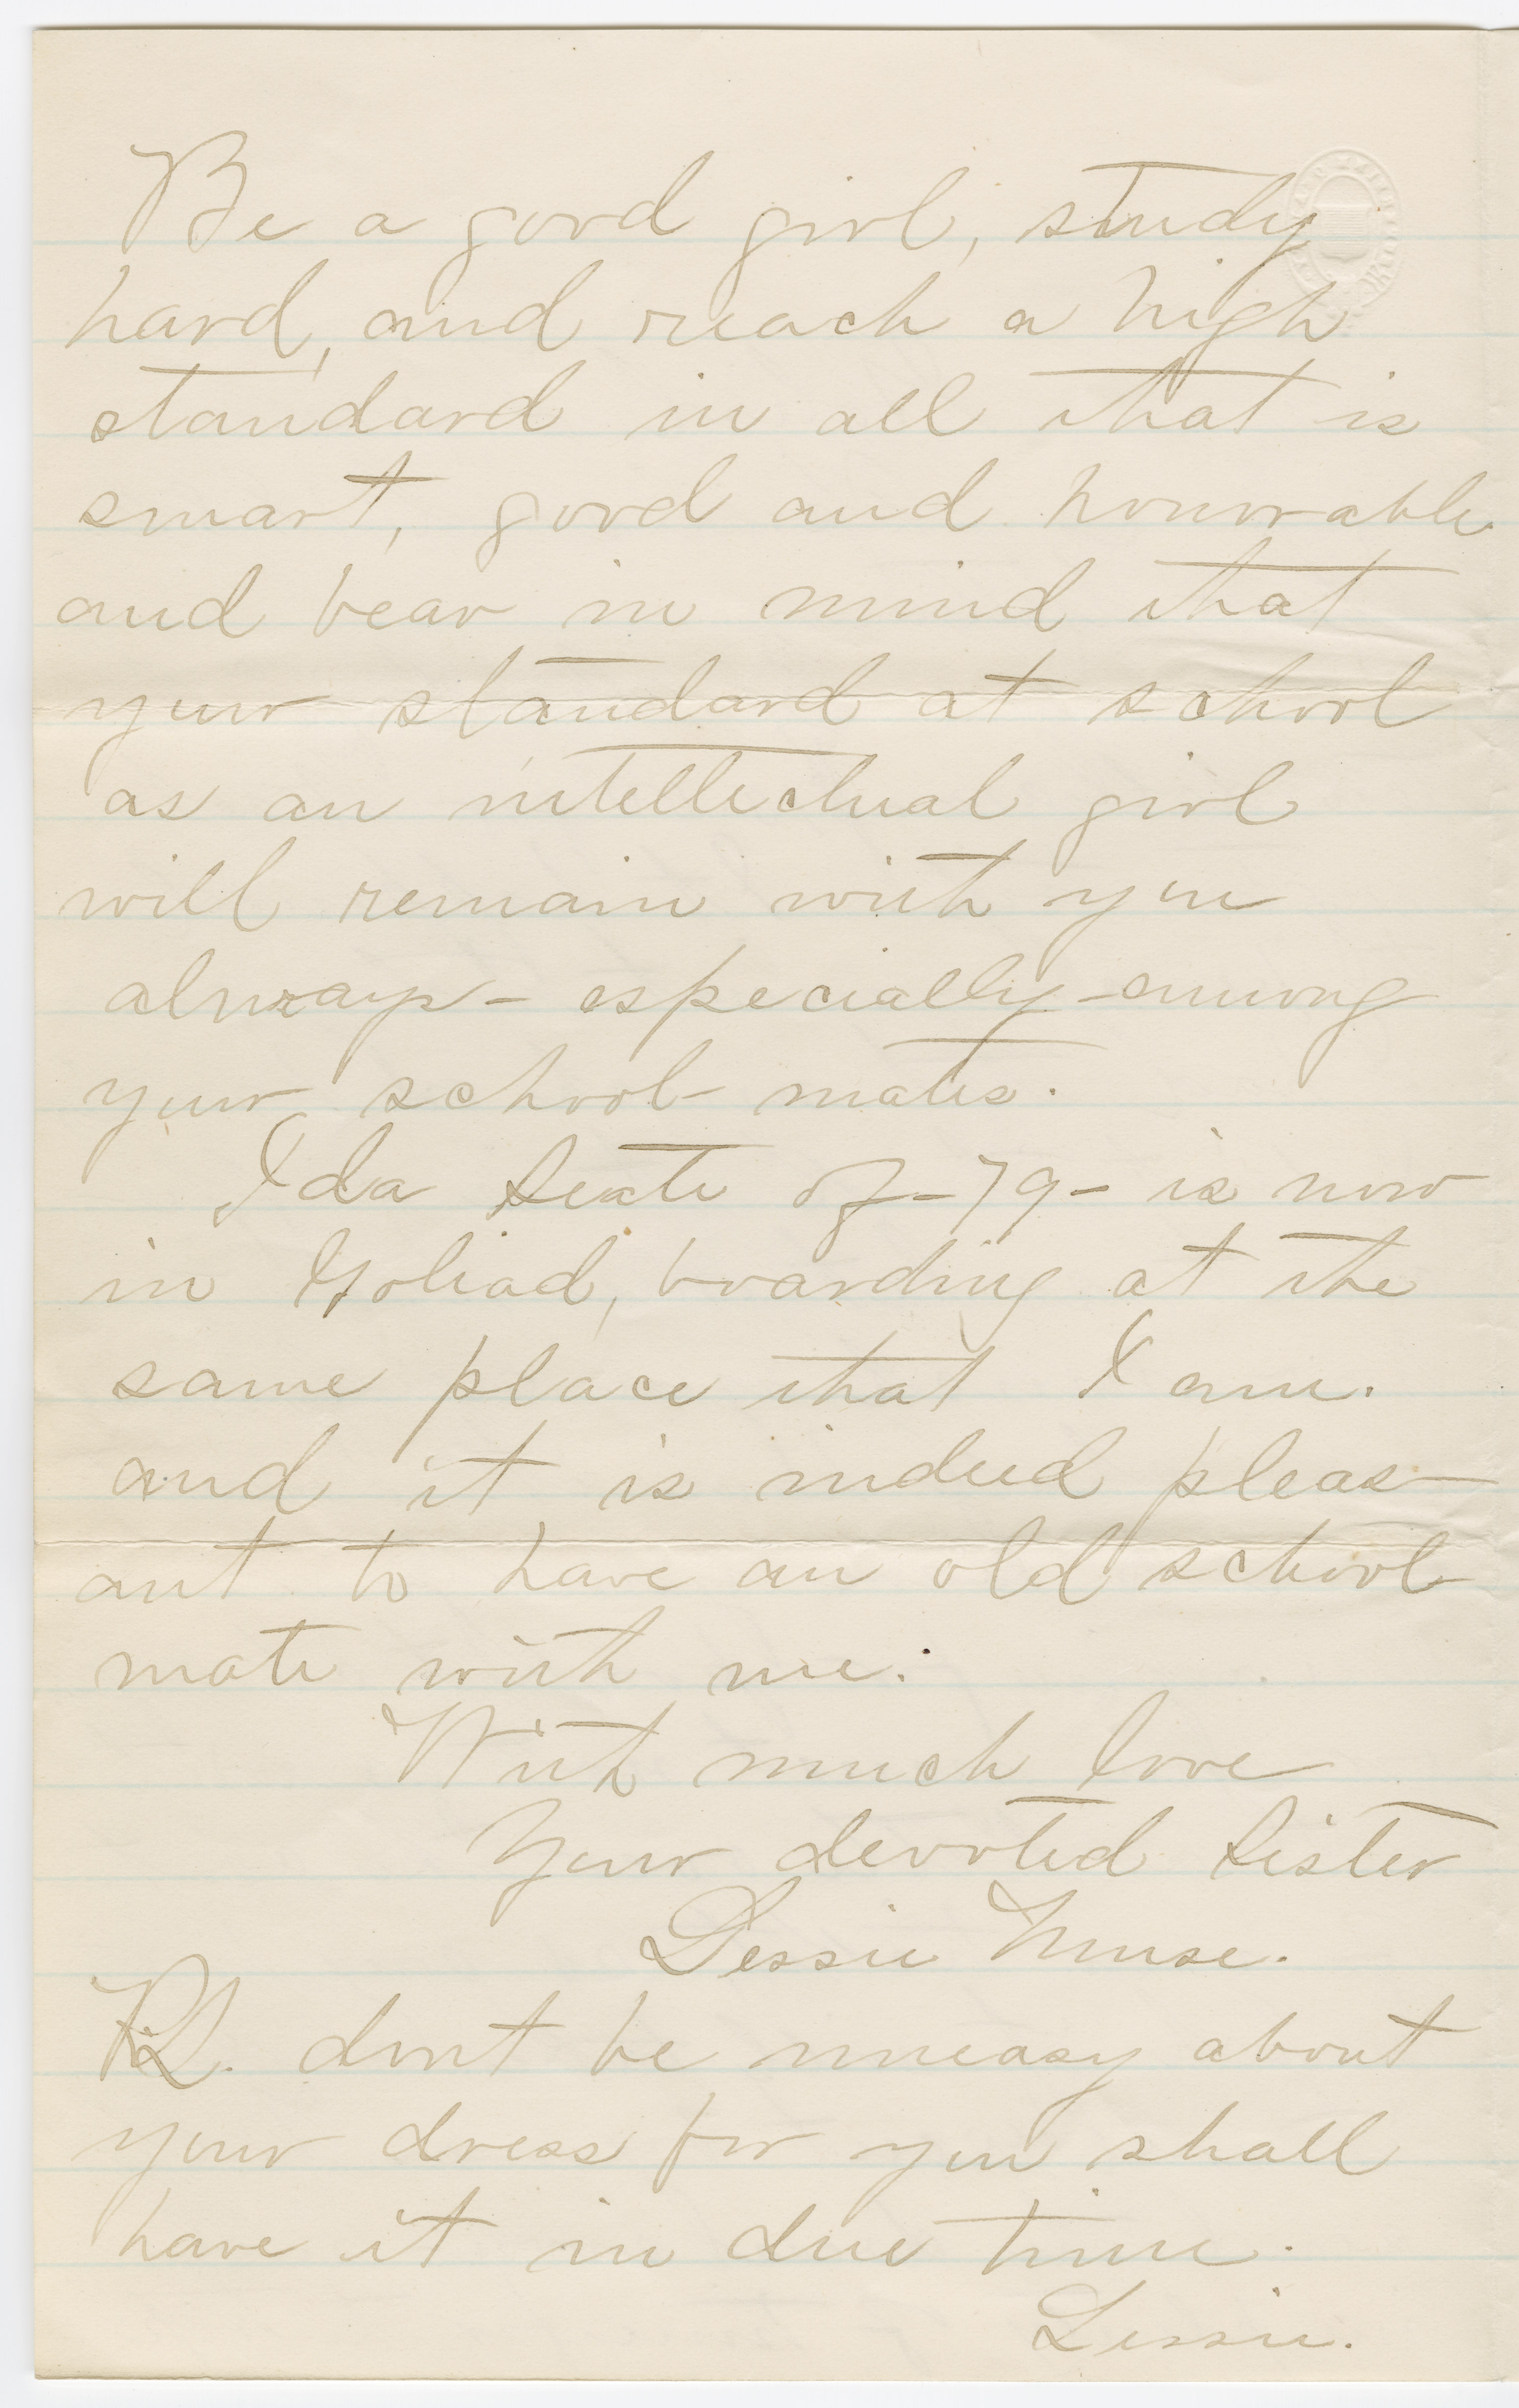 Be a good girl, study
hard, and reach a high
standard in all that is
smart, good and honorable
and bear in mind that
your standard at school
as an intellectual girl
will remain with you
always - especially among
your school mates.
Ida of -79- is now
in Goliad, boarding at the
same place that I am.
and it is indeed pleas-
ant to have an old school
mate with me.
With much love
Your devoted Sister
Lessie Muse.
P.S. dont be uneasy about
your dress for you shall
have it in due time.
Lessie.